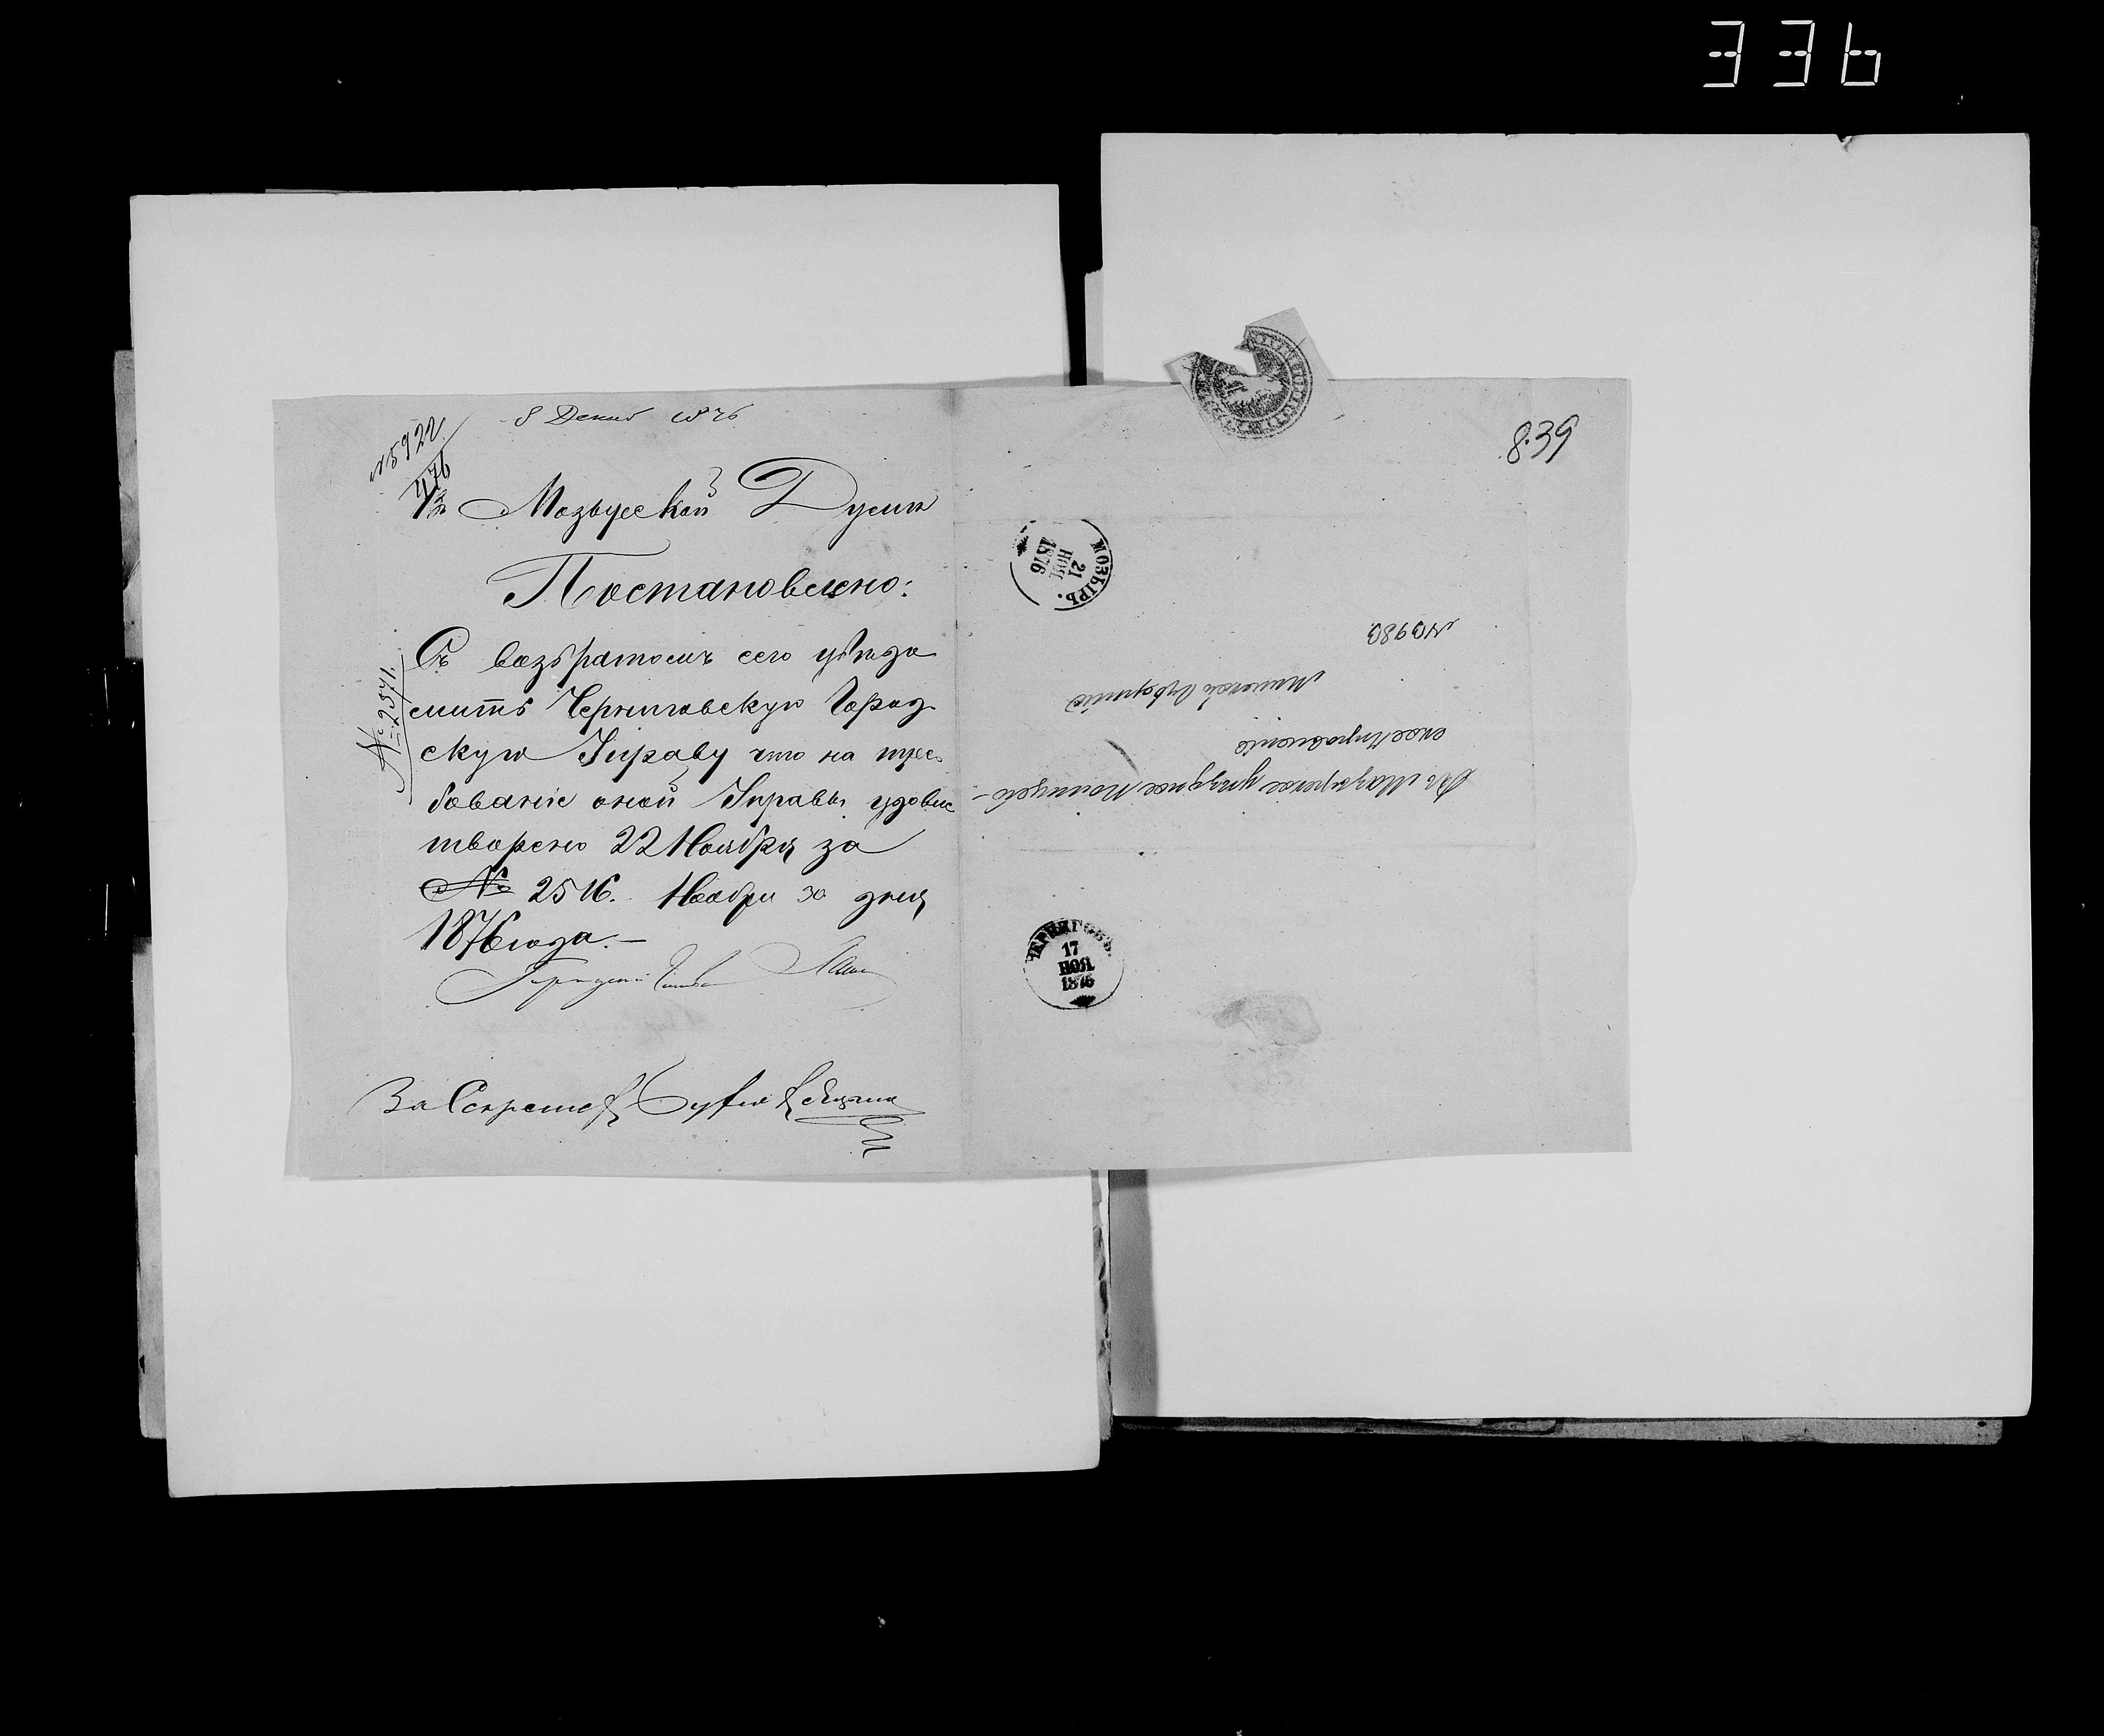 336
8 Декаб 1876
№ 5922
476
Въ Мозырской Думѣ
Постановлено:
Съ возвратомъ сего увѣдо
мить Черниговскую Город
скую Управу что на тре
бованіе оной Управы удовле
творено 22 Ноября за
№ 2516. Ноября 30 дня
1876 года.—
№ 2571.
Городской Голова
За Секретаря
839
МОЗЫРЬ.
21
НОЯ
1876
№ 3983
Минской Губерніи
ское Управленіе
Въ Мозырское уѣздное Полицей-
ЧЕРНИГОВЪ.
17
НОЯ
1876